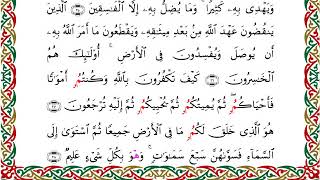 وَيَهْدِى بِهِۦ كَثِيرًا ۚ وَمَا يُضِلُّ بِهِۦٓ إِلَّا ٱلْفَـٰسِقِينَ ٱلَّذِينَ
يَنقُضُونَ عَهْدَ ٱللَّهِ مِنۢ بَعْدِ مِيثَـٰقِهِۦ وَيَقْطَعُونَ مَآ أَمَرَ ٱللَّهُ بِهِۦٓ
أَن يُوصَلَ وَيُفْسِدُونَ فِى ٱلْأَرْضِ ۚ أُو۟لَـٰٓئِكَ هُمُ
ٱلْخَـٰسِرُونَ كَيْفَ تَكْفُرُونَ بِٱللَّهِ وَكُنتُمُۥٓ أَمْوَٰتًا
فَأَحْيَـٰكُمُۥ ۖ ثُمَّ يُمِيتُكُمُۥ ثُمَّ يُحْيِيكُمُۥ ثُمَّ إِلَيْهِ تُرْجَعُونَ
هُوَ ٱلَّذِى خَلَقَ لَكُمُۥ مَا فِى ٱلْأَرْضِ جَمِيعًا ثُمَّ ٱسْتَوَىٰٓ إِلَى
ٱلسَّمَآءِ فَسَوَّىٰهُنَّ سَبْعَ سَمَـٰوَٰتٍ ۚ وَهْوَ بِكُلِّ شَىْءٍ عَلِيمٌ